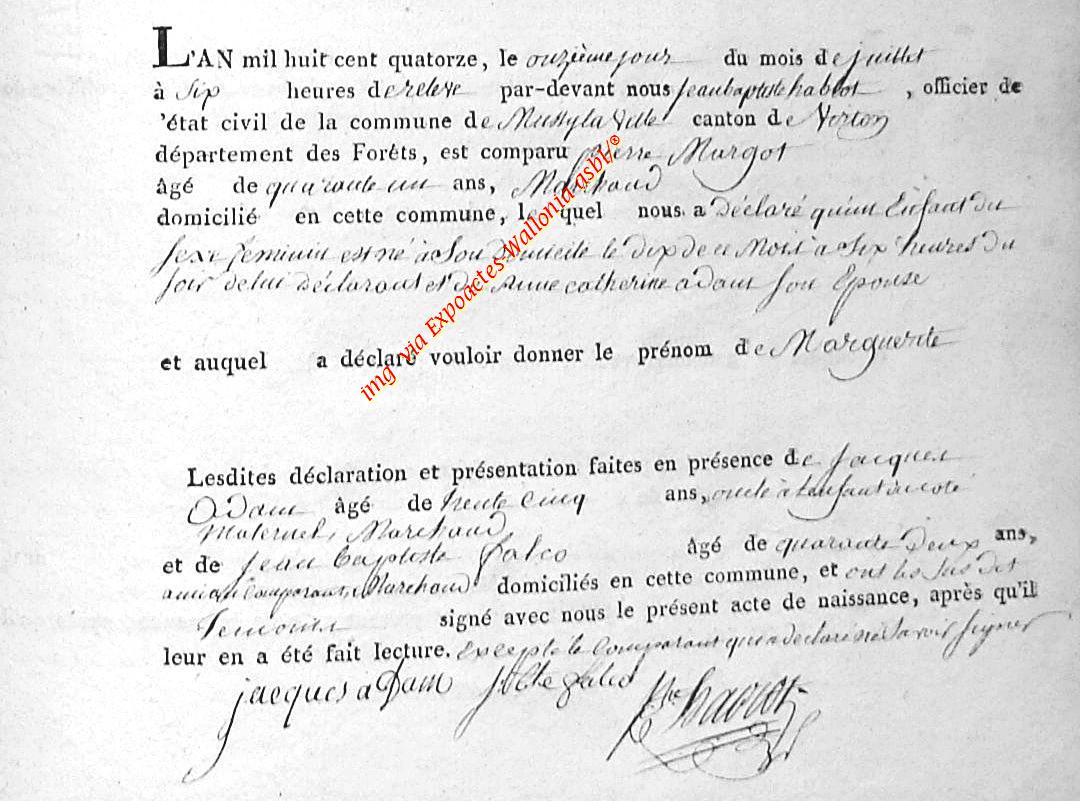 L'AN mil huit cent quatorze, le onzième jour du mois de juillet
à Six heures de releve par-devant nous jean baptiste habrot, officier de
'état civil de la commune de Mussy la Ville canton de Virton
département des Forêts, est comparu pierre Margot
âgé de quarante un ans, Marchand
domicilié en cette commune, lequel nous a déclaré qu'un Enfant du
Sexe feminin est né à Son Domicile le dix de ce Mois à Six heures du
Soir de lui déclarant et de Anne catherine adam Son Epouse
et auquel a déclaré vouloir donner le prénom de Marguerite
Lesdites déclaration et présentation faites en présence de Jacques
Adam âgé de trente cinq ans, oncle à Lenfant du coté
Maternel, Marchand
et de Jean Baptiste falco âgé de quarante Deux ans,
ami au Comparant, Marchand domiciliés en cette commune, et ont les Sus dit
Temoins signé avec nous le présent acte de naissance, après qu'il
leur en a été fait lecture. Excepté le Comparant qui a declaré ne Savoir Signer
jacques adam JBte falco habrot
img via Expoactes Wallonia-asbl/®